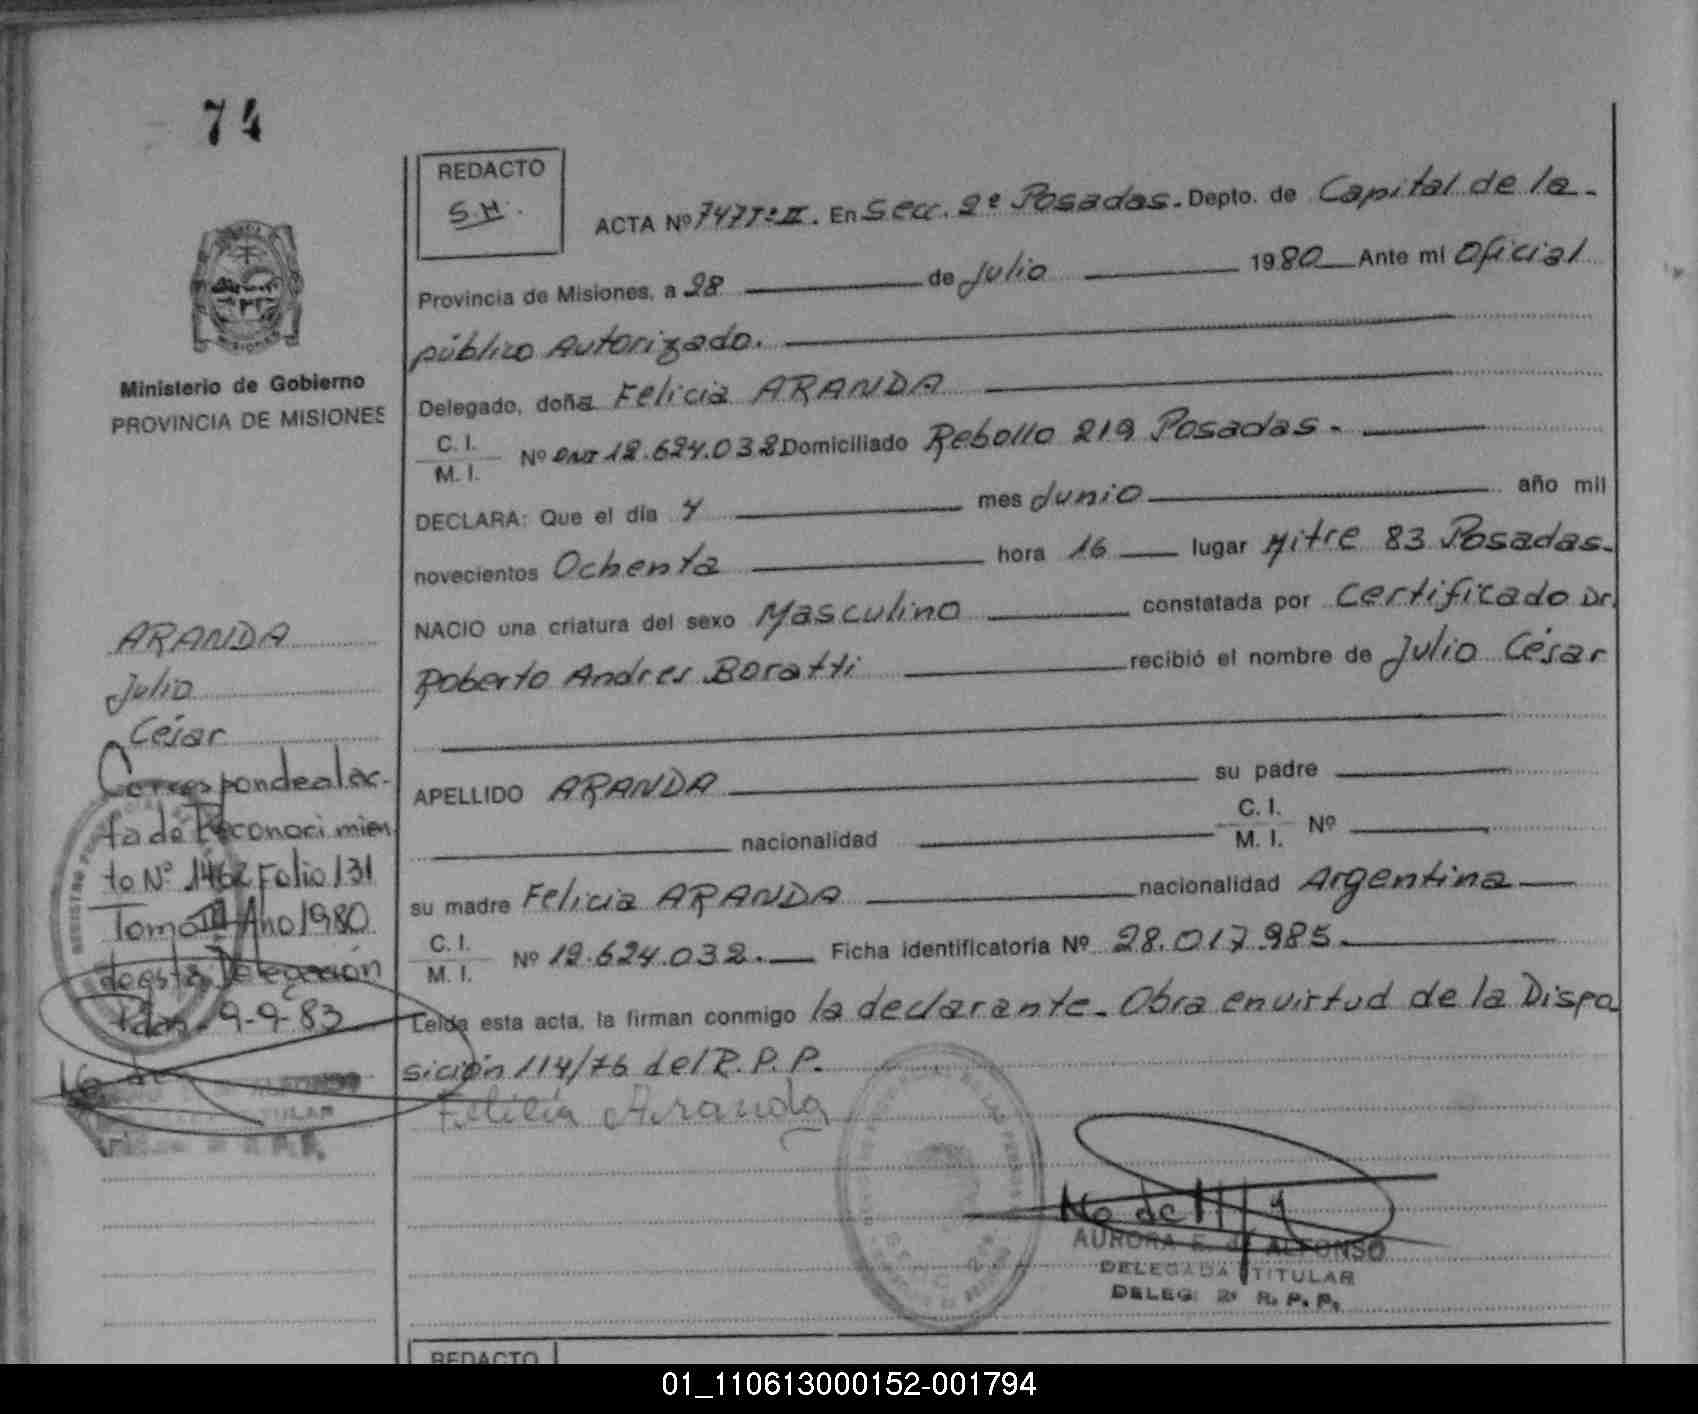 74
REDACTO
S.H.
ACTA Nº 747 Tº II. En Secc. 2ª Posadas. Depto. de Capital de la
Provincia de Misiones, a 28 de Julio 1980 Ante mi Oficial
público Autorizado.
Ministerio de Gobierno
PROVINCIA DE MISIONES
Delegado, doña Felicia ARANDA
C. I.
M. I. Nº DNI 12.624.032 Domiciliado Rebollo 219 Posadas.
DECLARA: Que el día 4 mes Junio año mil
novecientos Ochenta hora 16 lugar Mitre 83 Posadas.
NACIO una criatura del sexo Masculino constatada por Certificado Dr.
Roberto Andres Boratti recibió el nombre de Julio César
APELLIDO ARANDA su padre
nacionalidad C. I.
M. I. Nº
su madre Felicia ARANDA nacionalidad Argentina
C. I.
M. I. Nº 12.624.032. Ficha identificatoria Nº 28.017.985.
Leída esta acta, la firman conmigo la declarante. Obra en virtud de la Dispo
sición 114/76 del R.P.P.
Felicia Aranda
AURORA E. de ALFONSO
DELEGADA TITULAR
DELEG. 2ª R. P. P.
ARANDA
Julio
César
Corresponde al ac-
ta de Reconocimien
to Nº 1462 Folio 131
Tomo III Año 1980
de esta Delegación
Pdas. 9-9-83
ALFONSO
TITULAR
REDACTO
01_110613000152-001794